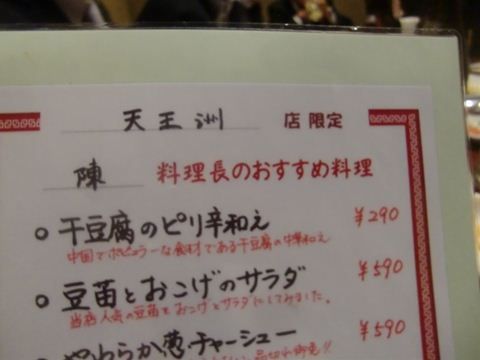 天王洲 店 限定
陳 料理長のおすすめ料理
○ 干豆腐のピリ辛和え ¥290
中国でポピュラーな食材である干豆腐の中華和え
○ 豆苗とおこげのサラダ ¥590
当店人気の豆苗とおこげをサラダにしてみました。
やわらか葱チャーシュー ¥590